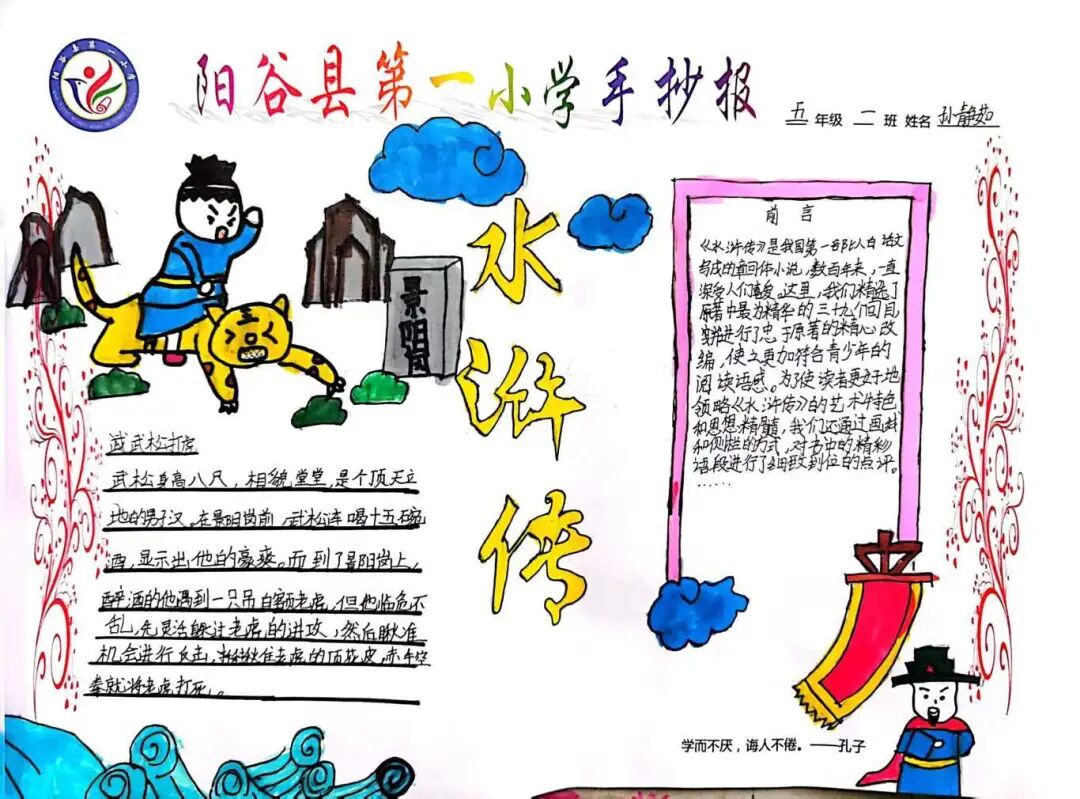 阳谷县第一小学
阳谷县第一小学手抄报
五 年级 二 班 姓名 孙静茹
水浒传
景阳冈
前言
《水浒传》是我国第一部以白话文
写成的章回体小说，数百年来，一直
深受人们喜爱。这里，我们精选了
原著中最为精华的三十九个回目，
并进行了忠于原著的精心改
编，使之更加符合青少年的
阅读语感。为了使读者更好地
领略《水浒传》的艺术特色
和思想精髓，我们还通过画封
和侧栏的方式，对书中的精彩
语段进行了细致到位的点评。
……
武松打虎
武松身高八尺，相貌堂堂，是个顶天立
地的男子汉。在景阳岗前，武松连喝十五碗
酒，显示出他的豪爽。而到了景阳岗上，
醉酒的他遇到一只吊白额老虎，但他临危不
乱，先灵活躲过老虎的进攻，然后瞅准
机会进行反击，揪住老虎的顶花皮，赤手空
拳就将老虎打死。
学而不厌，诲人不倦。——孔子